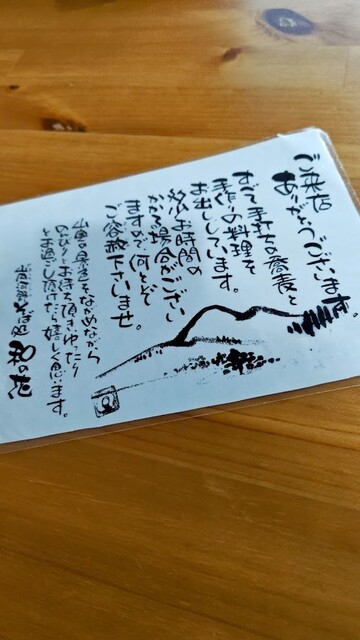 ご来店
ありがとうございます。
すべて手打ちの蕎麦と
手作りの料理を
お出ししています。
お時間の
かかる場合がござい
ますので何とぞ
ご容赦下さいませ。
山里の景色をながめながら
のんびりとお待ち頂きゆったり
とお過ごし頂けたら嬉しく思います。
そば処 和の花